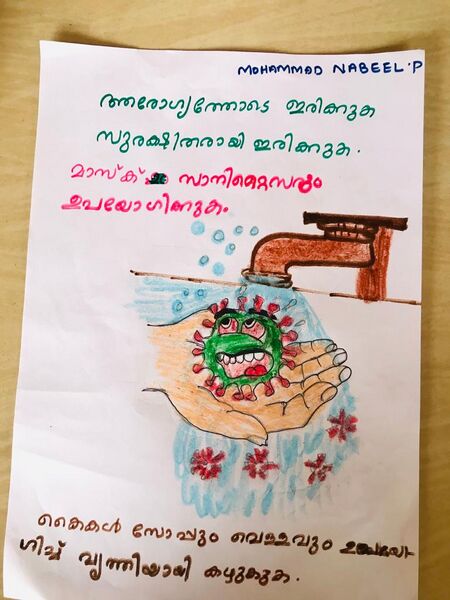 MOHAMMAD NABEEL.P
ആരോഗ്യത്തോടെ ഇരിക്കുക
സുരക്ഷിതരായി ഇരിക്കുക.
മാസ്ക് സാനിറ്റൈസരും
ഉപയോഗിക്കുക.
കൈകൾ സോപ്പും വെള്ളവും ഉപയോ
ഗിച്ച് വൃത്തിയായി കഴുകുക.